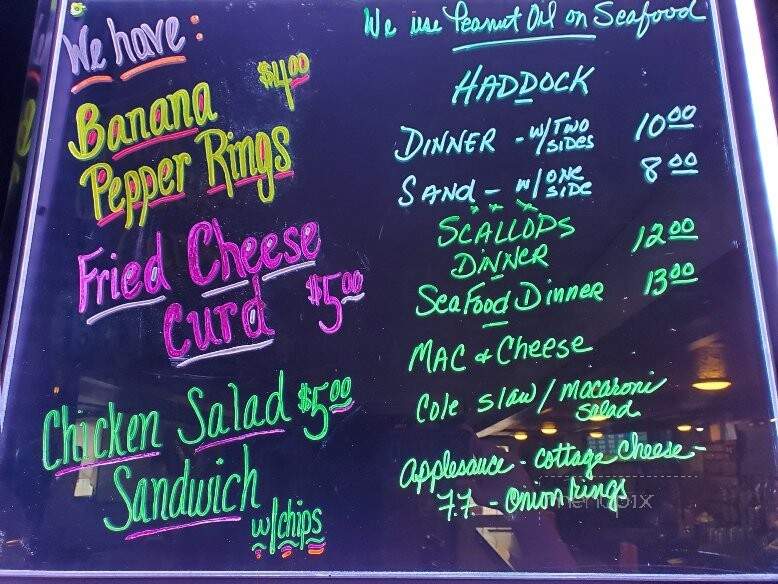 We have:
Banana $4.00
Pepper Rings
Fried Cheese
Curd $5.00
Chicken Salad $5.00
Sandwich
w/chips
We use Peanut Oil on Seafood
HADDOCK
DINNER - w/TWO SIDES 10.00
SAND - w/ONE SIDE 8.00
SCALLOPS
DINNER 12.00
SeaFood Dinner 13.00
MAC & Cheese
Cole slaw / macaroni salad
applesauce - cottage cheese -
F.F - onion rings